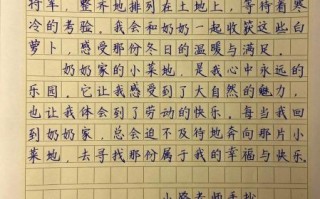 将军，整齐地排列在土地上，等待着寒
冷的考验。我会和奶奶一起收获这些白
萝卜，感受那份冬日的温暖与满足。
奶奶家的小菜地，是我心中永远的
乐园。它让我感受到了大自然的魅力，
也让我体会到了劳动的快乐。每当我回
到奶奶家，总会迫不及待地奔向那片小
菜地，去寻找那份属于我的幸福与快乐。
小路老师手抄